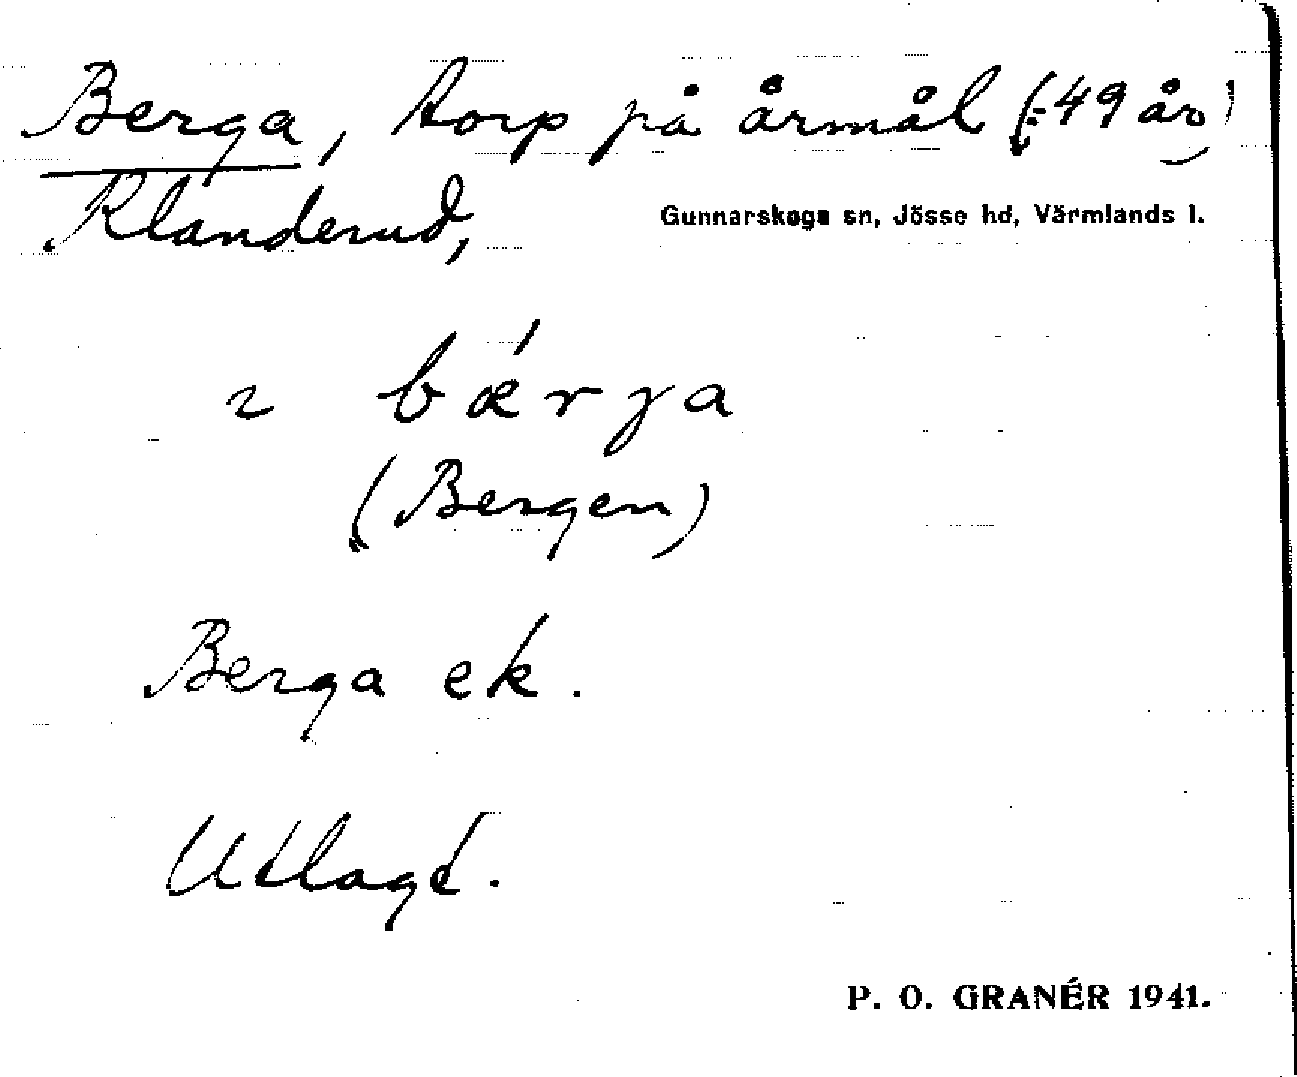 Berga, torp på årmål (:49 år)
Klanderud,
Gunnarskogs sn, Jösse hd, Värmlands l.
2 bǽrja
(Bergen)
Berga ek.
Utlagd.
P. O. GRANÉR 1941.